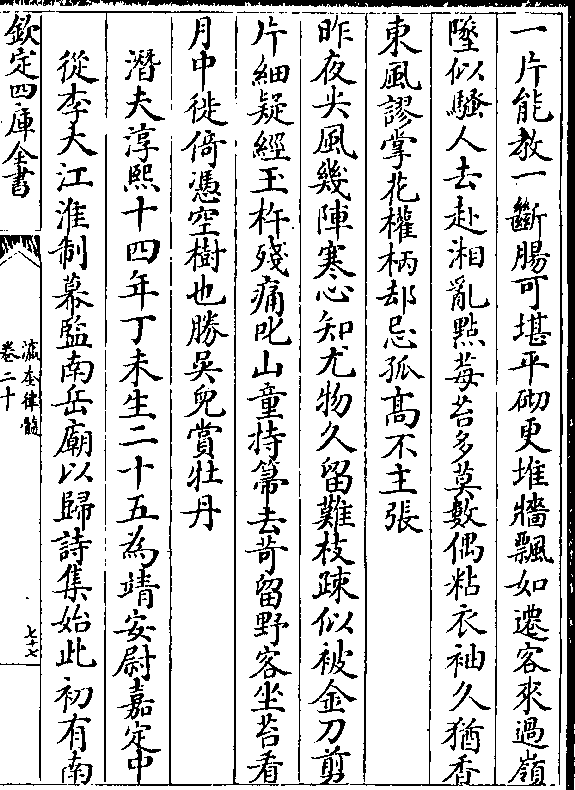 一片能教一斷腸可堪平砌更堆牆飄如遷客來過嶺
墜似騷人去赴湘亂㸃莓苔多莫數偶粘衣袖久猶香
東風謬掌花權柄却忌孤髙不主張
昨夜尖風幾陣寒心知尤物久留難枝疎似被金刀剪
片細疑經玉杵殘痛叱山童持箒去苛留野客坐苔看
月中徙倚憑空樹也勝吳兒賞牡丹
潛夫淳熙十四年丁未生二十五為靖安尉嘉定中
從李大江淮制幕監南岳廟以歸詩集始此初有南
欽定四庫全書
瀛奎律髓
卷二十
七十七